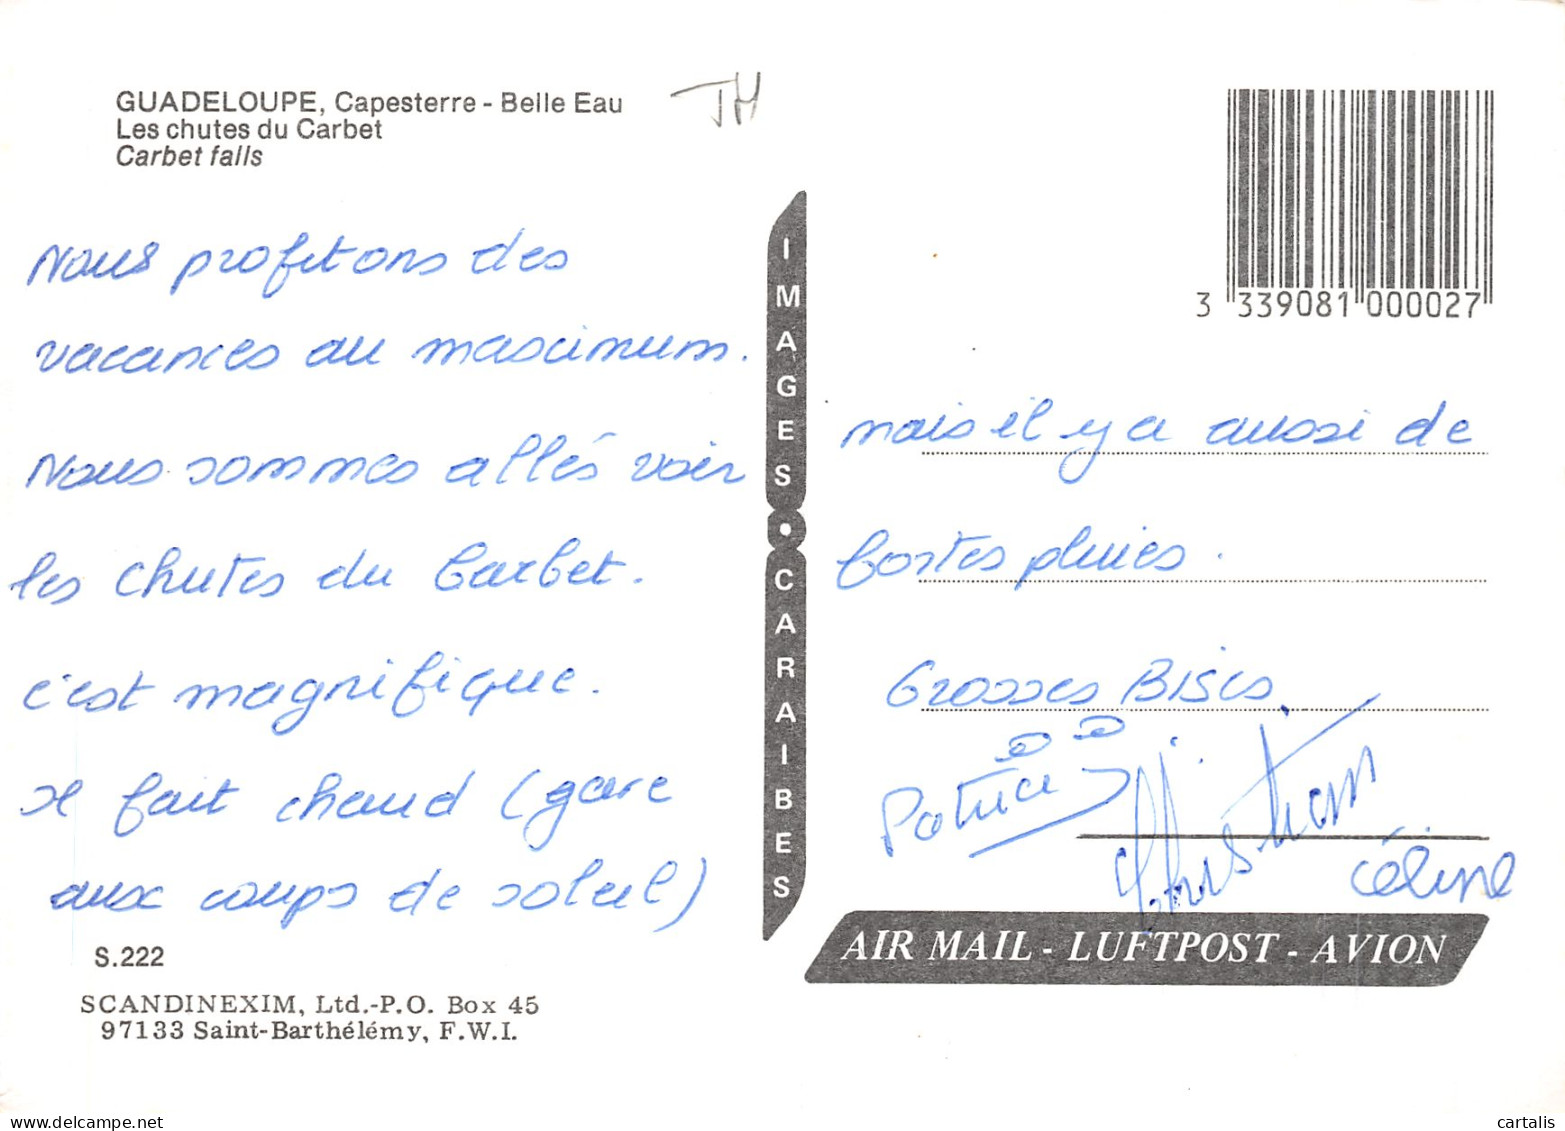 GUADELOUPE, Capesterre - Belle Eau
Les chutes du Carbet
Carbet falls
JH
Nous profitons des
vacances au maximum.
Nous sommes allés voir
les chutes du Carbet.
c'est magnifique.
Il fait chaud (gare
aux coups de soleil)
S.222
SCANDINEXIM, Ltd.-P.O. Box 45
97133 Saint-Barthélémy, F.W.I.
IMAGES • CARAIBES
3 339081 000027
mais il y a aussi de
fortes pluies.
Grosses Bises.
Patrice
Christian
Céline
AIR MAIL - LUFTPOST - AVION
www.delcampe.net
cartalis